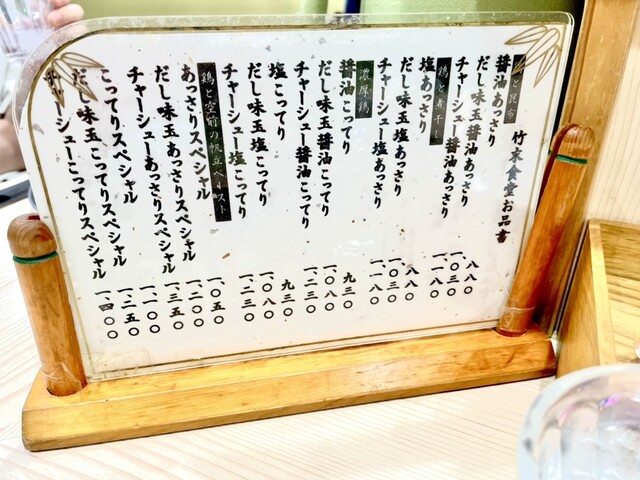 竹末食堂お品書
と昆布
醤油あっさり 八八〇
だし味玉醤油あっさり 一、〇三〇
チャーシュー醤油あっさり 一、一八〇
鶏と煮干し
塩あっさり 八八〇
だし味玉塩あっさり 一、〇三〇
チャーシュー塩あっさり 一、一八〇
濃厚鶏
醤油こってり 九三〇
だし味玉醤油こってり 一、〇八〇
チャーシュー醤油こってり 一、二三〇
塩こってり 九三〇
だし味玉塩こってり 一、〇八〇
チャーシュー塩こってり 一、二三〇
鶏と空前の帆立ペースト
あっさりスペシャル 一、〇五〇
だし味玉あっさりスペシャル 一、二〇〇
チャーシューあっさりスペシャル 一、三五〇
こってりスペシャル 一、一〇〇
だし味玉こってりスペシャル 一、二五〇
チャーシューこってりスペシャル 一、四〇〇